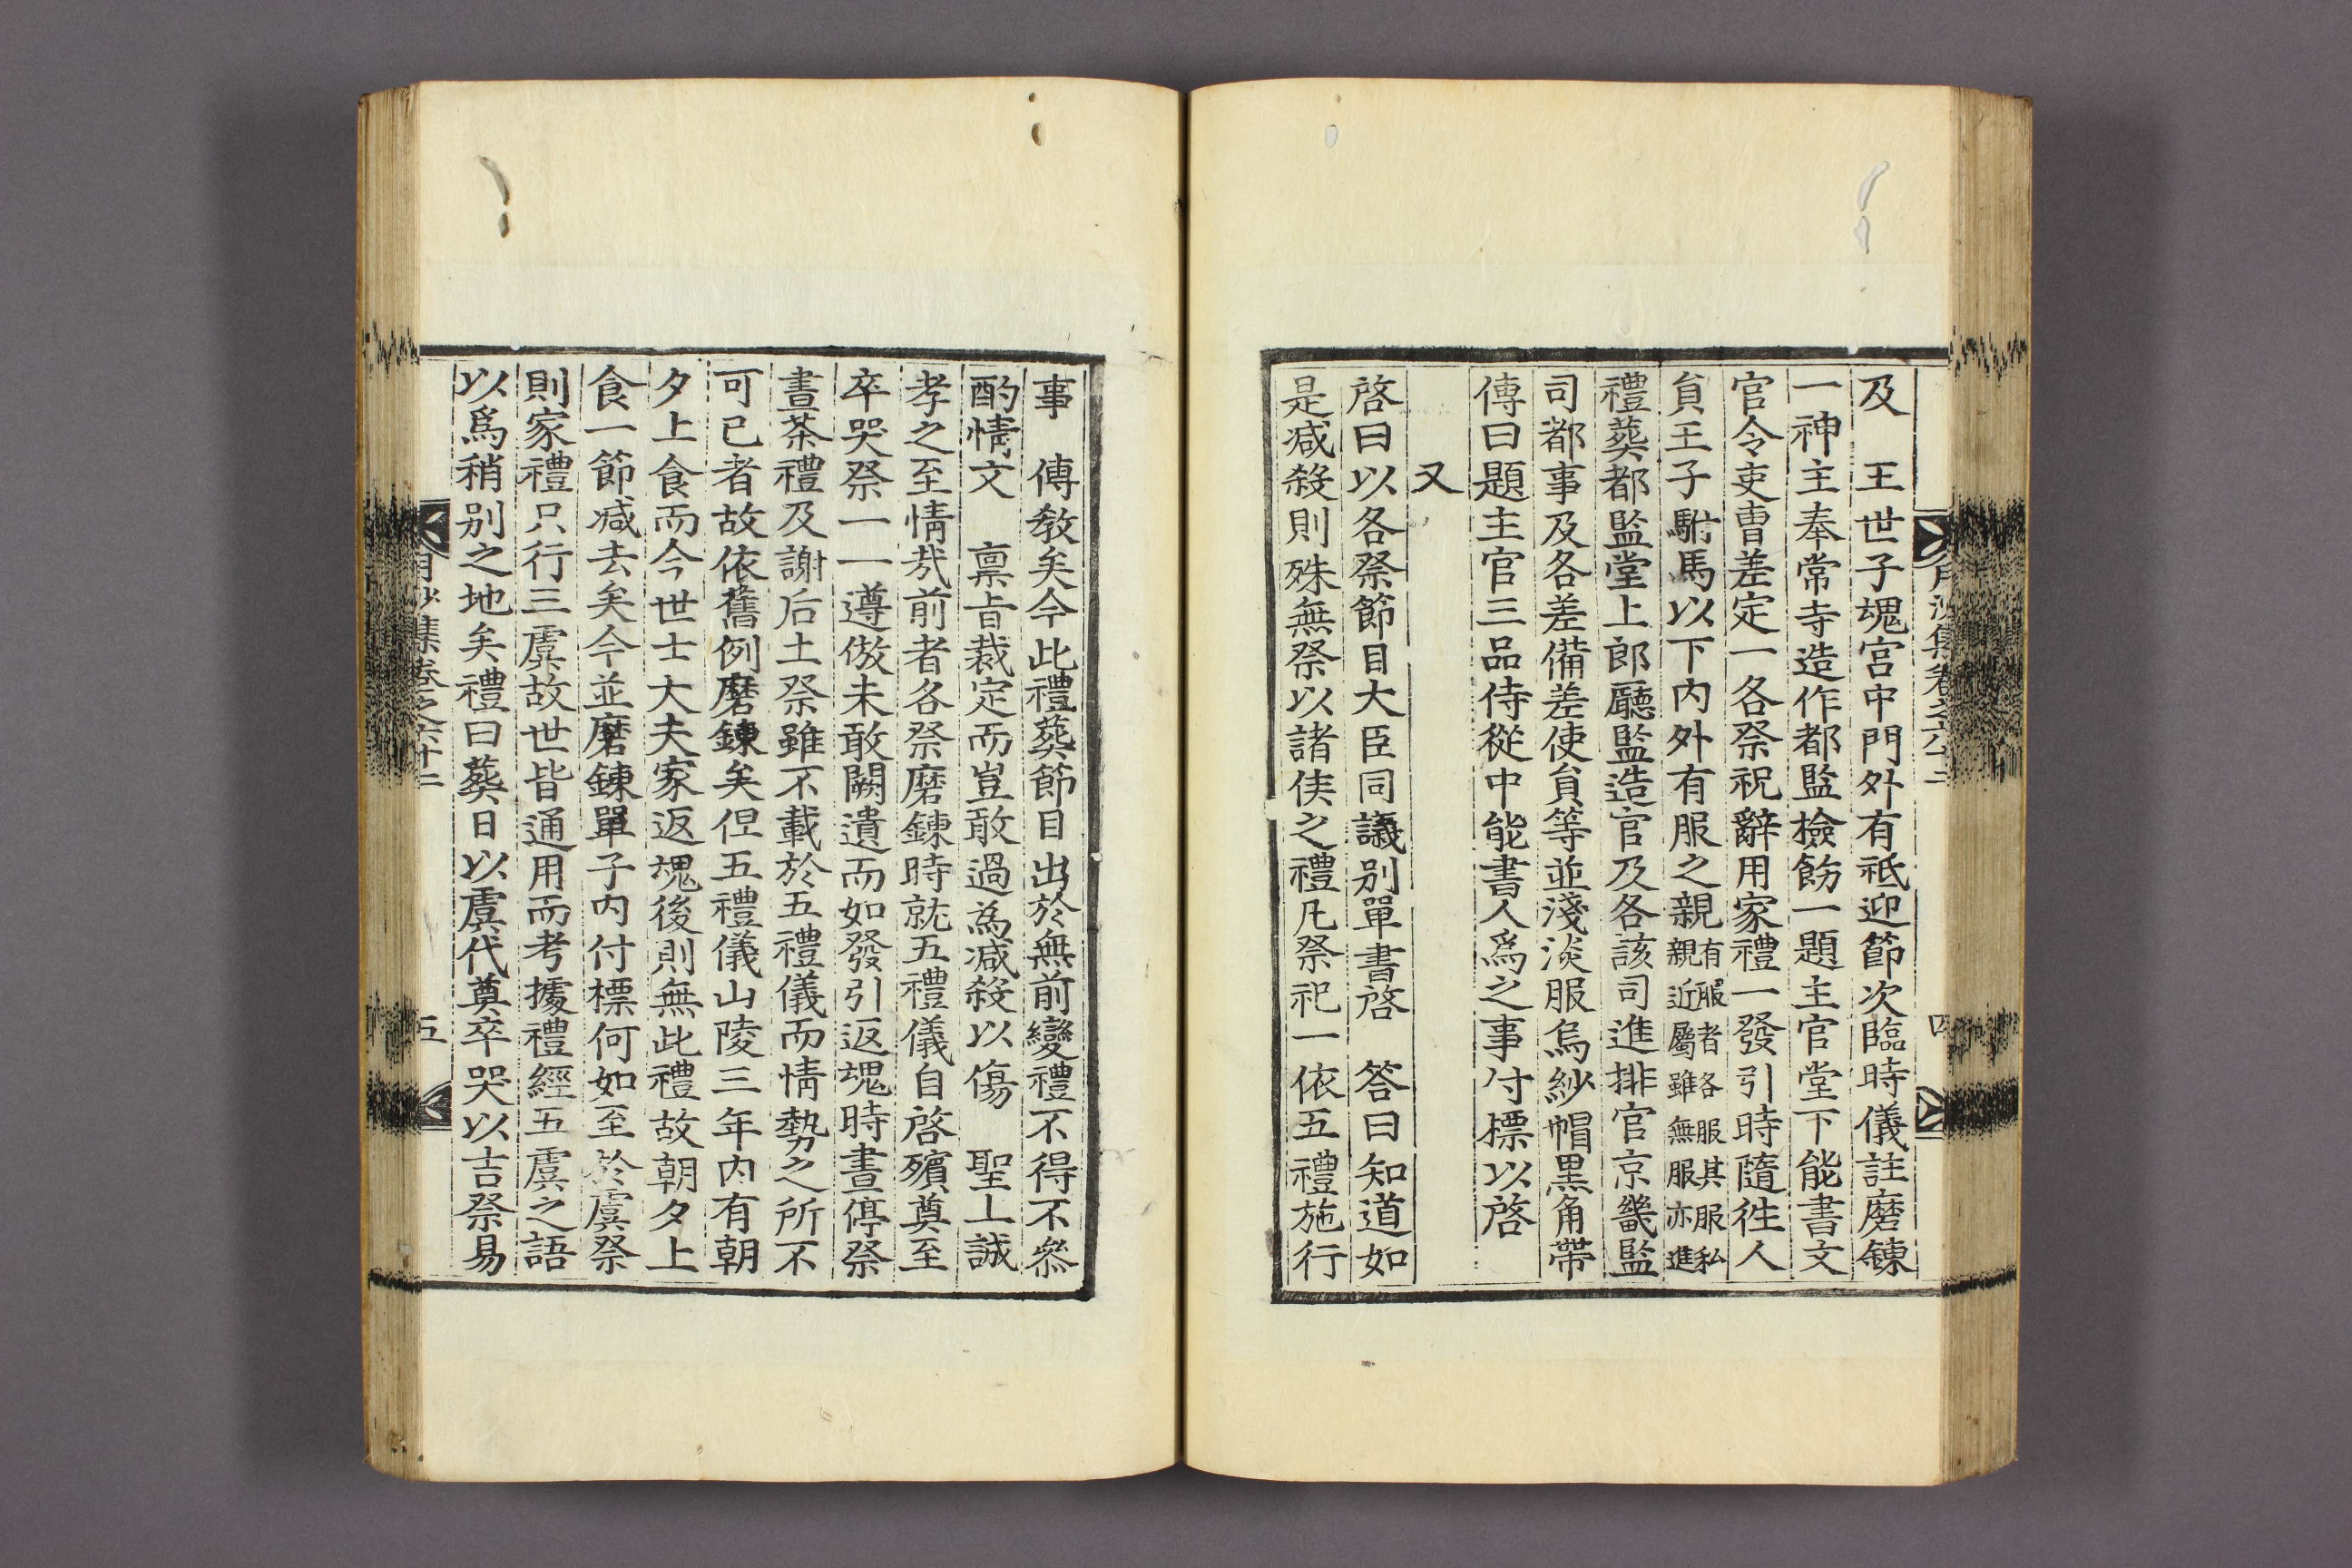 及 王世子魂宮中門外有祗迎節次臨時儀註磨鍊
一神主奉常寺造作都監檢飭一題主官堂下能書文
官令吏曹差定一各祭祝辭用家禮一發引時隨徃人
貟王子駙馬以下內外有服之親有服者各服其服私親近屬雖無服亦進
禮葬都監堂上郎廳監造官及各該司進排官京畿監
司都事及各差備差使貟等並淺淡服烏紗帽黑角帶
傳曰題主官三品侍從中能書人爲之事付標以啓
又
啓曰以各祭節目大臣同議別單書啓 答曰知道如
是减殺則殊無祭以諸侯之禮凡祭祀一依五禮施行
事 傳敎矣今此禮葬節目出於無前變禮不得不叅
酌情文 禀旨裁定而豈敢過爲减殺以傷 聖上誠
孝之至情㢤前者各祭磨鍊時就五禮儀自啓殯奠至
卒哭祭一一遵倣未敢闕遺而如發引返魂時晝停祭
晝茶禮及謝后土祭雖不載於五禮儀而情勢之所不
可已者故依舊例磨鍊矣但五禮儀山陵三年內有朝
夕上食而今世士大夫家返魂後則無此禮故朝夕上
食一節减去矣今並磨鍊單子內付標何如至於虞祭
則家禮只行三虞故世皆通用而考據禮經五虞之語
以爲稍別之地矣禮曰葬日以虞代奠卒哭以吉祭易
五